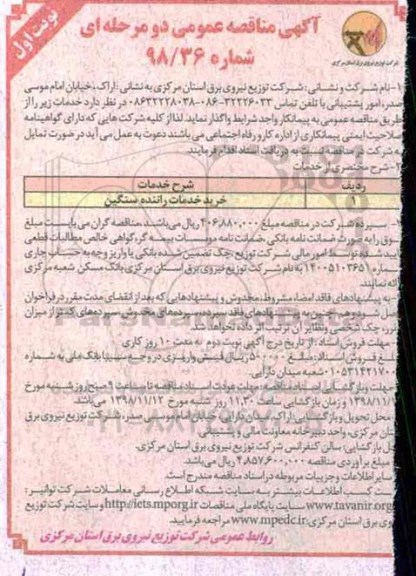 نوبت اول
آگهی مناقصه عمومی دو مرحله ای
شماره ۹۸/۳۶
شرکت توزیع نیروی برق استان مرکزی
۱- نام شرکت و نشانی: شرکت توزیع نیروی برق استان مرکزی به نشانی: اراک، خیابان امام موسی
صدر، امور پشتیبانی یا تلفن تماس ۳۲۲۲۶۰۳۳-۰۸۶ ۰۸۶۳۲۲۲۸۰۳۸ در نظر دارد خدمات زیر را از
طریق مناقصه عمومی به پیمانکار واجد شرایط واگذار نماید. لذا از کلیه شرکت هایی که دارای گواهینامه
صلاحیت ایمنی پیمانکاری از اداره کار و رفاه اجتماعی می باشند دعوت به عمل می آید در صورت تمایل
به شرکت در مناقصه نسبت به دریافت اسناد اقدام فرمایند.
شرح مختصری از خدمات
ردیف شرح خدمات
۱ خرید خدمات راننده سنگین
سپرده شرکت در مناقصه مبلغ ۴۰۶,۸۸۰,۰۰۰ ریال می باشد. مناقصه گران می بایست مبلغ
فوق را به صورت ضمانت نامه بانکی، ضمانت نامه موسسات بیمه گر، گواهی خالص مطالبات قطعی
شده توسط امور مالی شرکت توزیع، چک تضمین شده بانکی یا واریز وجه به حساب جاری
شماره ۱۴۰۰۵۱۰۳۶۵۱ به نام شرکت توزیع نیروی برق استان مرکزی بانک مسکن شعبه مرکزی
ارائه نمایند.
- به پیشنهادهای فاقد امضاء، مشروط، مخدوش و پیشنهادهایی که بعد از انقضای مدت مقرر در فراخوان
واصل شود و همچنین به پیشنهادهای فاقد سپرده، سپرده های مخدوش، سپرده های کمتر از میزان
مقرر، چک شخصی و نظایر آن ترتیب اثر داده نخواهد شد.
- مهلت فروش اسناد: از تاریخ درج آگهی نوبت دوم به مدت ۱۰ روز کاری
مبلغ فروش اسناد: مبلغ ۵۰۰,۰۰۰ ریال فیش واریزی در وجه سیبا بانک ملی به شماره
شعبه میدان دارایی
مهلت و بازگشایی اسناد مناقصه: مهلت عودت اسناد مناقصه تا ساعت ۹ صبح روز شنبه مورخ
۱۳۹۸/۱۱/۱۲ و زمان بازگشایی ساعت ۱۱:۳۰ روز شنبه مورخ ۱۳۹۸/۱۱/۱۲ می باشد.
محل تحویل و بازگشایی: اراک، میدان دارایی، خیابان امام موسی صدر، شرکت توزیع نیروی برق
استان مرکزی، واحد دبیرخانه معاونت مالی و پشتیبانی
محل بازگشایی: سالن کنفرانس شرکت توزیع نیروی برق استان مرکزی.
مبلغ برآوردی مناقصه ۴,۸۵۷,۶۰۰,۰۰۰ ریال می باشد.
سایر اطلاعات و جزییات مربوطه در اسناد مناقصه مندرج است.
جهت کسب اطلاعات بیشتر به سایت شبکه اطلاع رسانی معاملات شرکت توانیر:
www.tavanir.org سایت پایگاه ملی مناقصات http://iets.mporg.ir و سایت شرکت توزیع
نیروی برق استان مرکزی: www.mpedc.ir مراجعه فرمایید.
روابط عمومی شرکت توزیع نیروی برق استان مرکزی